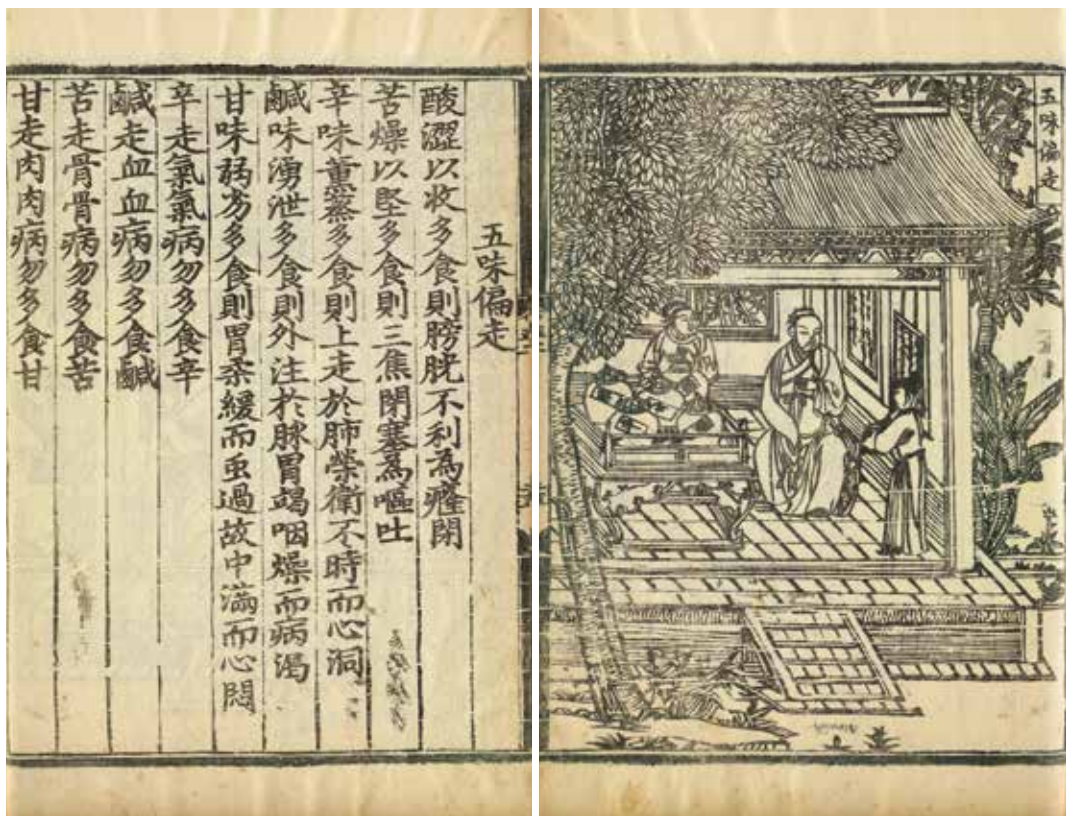 五味偏走
五味偏走
酸澀以收多食則膀胱不利為癃閉
苦燥以堅多食則三焦閉塞為嘔吐
辛味薰蒸多食則上走於肺榮衛不時而心洞
鹹味湧泄多食則外注於脉胃竭咽燥而病渴
甘味弱劣多食則胃柔緩而虫過故中滿而心悶
辛走氣氣病勿多食辛
鹹走血血病勿多食鹹
苦走骨骨病勿多食苦
甘走肉肉病勿多食甘